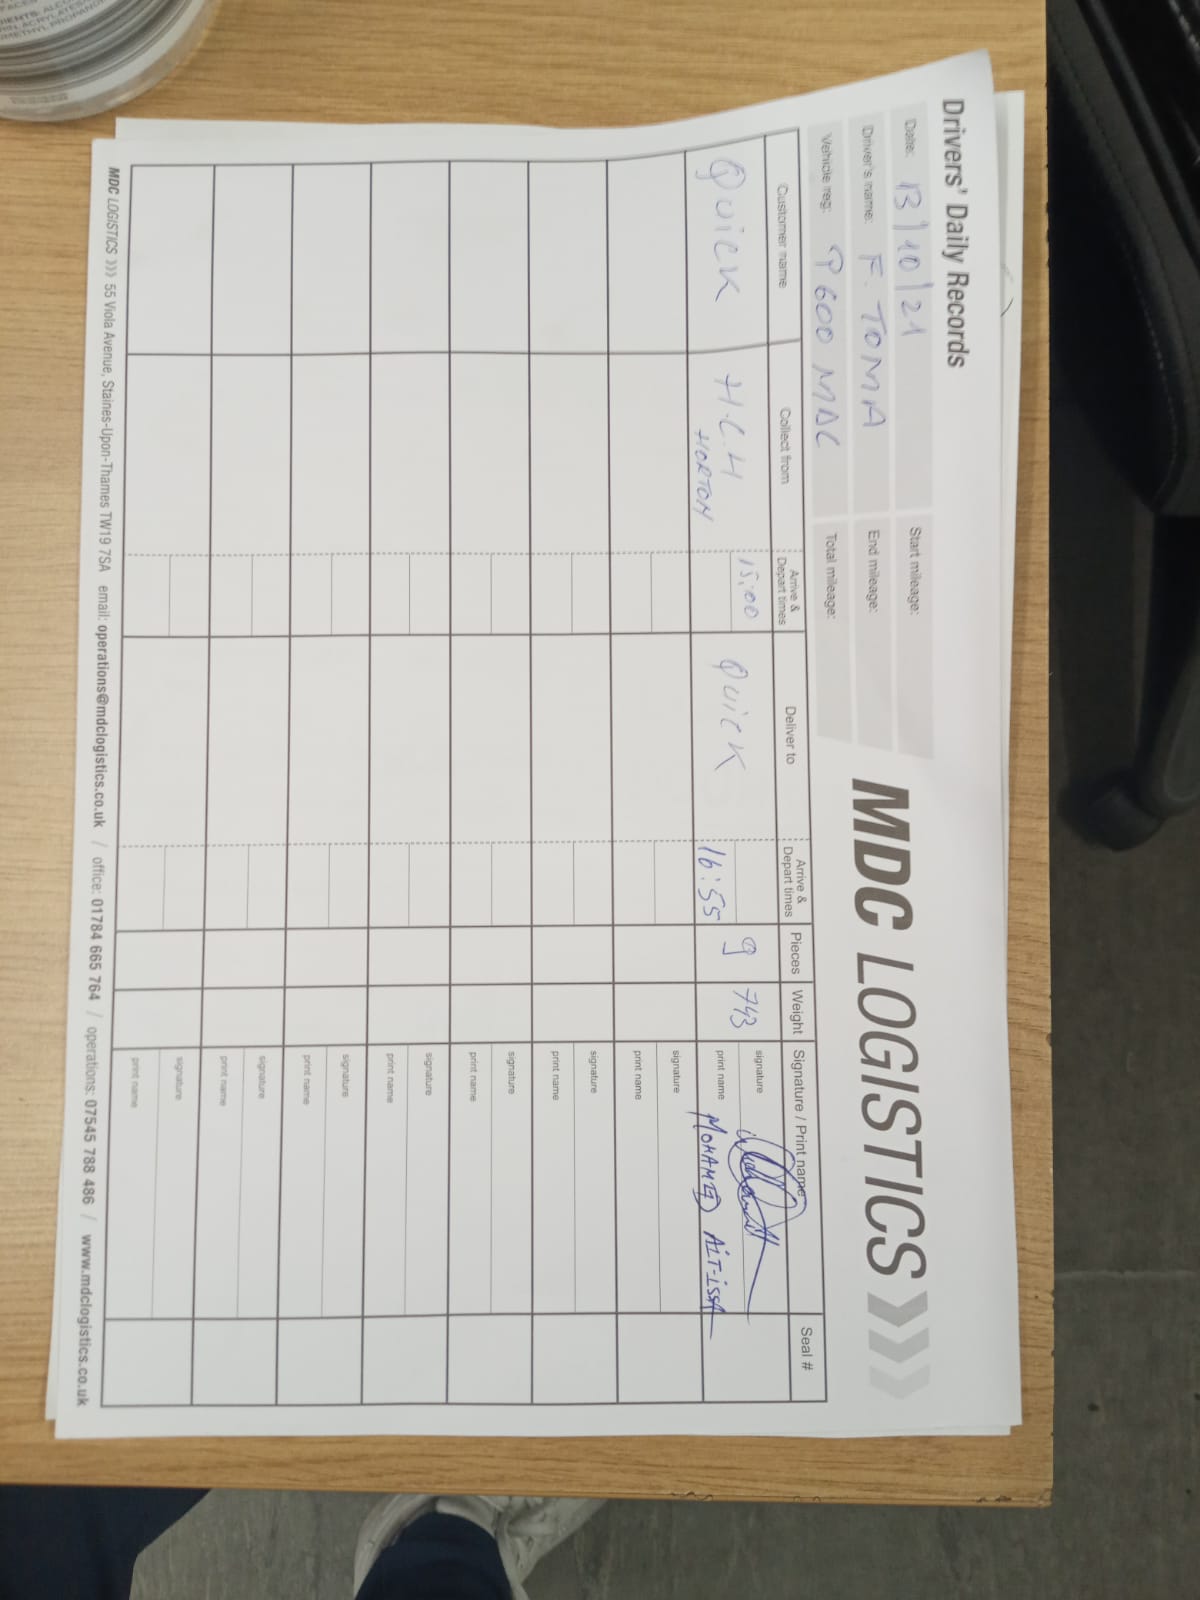 Drivers' Daily Records
Date: 13/10/21
Start mileage:
Driver's name: F. TOMA
End mileage:
Vehicle reg: P600 MDC
Total mileage:
MDC LOGISTICS
Customer name Collect from Arrive & Depart times Deliver to Arrive & Depart times Pieces Weight Signature / Print name Seal #
QUICK H.C.H HORTON 15:00 QUICK 16:55 9 743
signature
print name MOHAMED AIT-ISSA
signature
print name
signature
print name
signature
print name
signature
print name
signature
print name
signature
print name
signature
print name
MDC LOGISTICS ⟩⟩⟩ 55 Viola Avenue, Staines-Upon-Thames TW19 7SA email: operations@mdclogistics.co.uk / office: 01784 665 764 / operations: 07545 788 486 / www.mdclogistics.co.uk